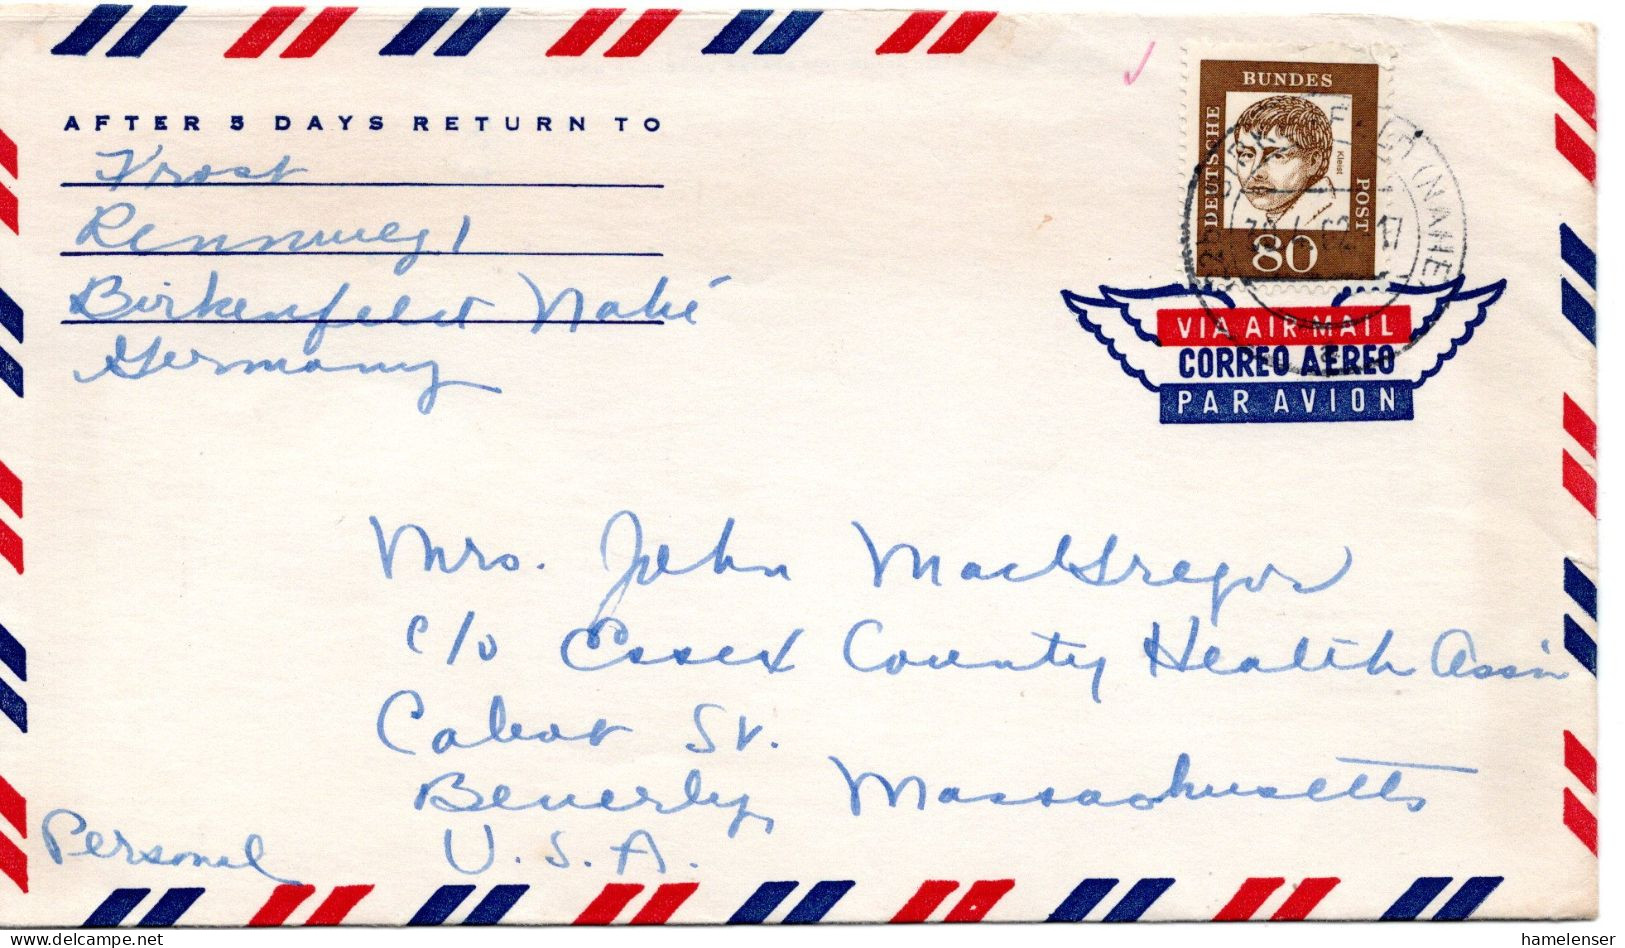 AFTER 5 DAYS RETURN TO
Krost
Rennweg 1
Birkenfeld Nahe
Germany
DEUTSCHE
BUNDES
POST
Kleist
80
VIA AIR MAIL
CORREO AEREO
PAR AVION
Mrs. John MacGregor
c/o Essex County Health Assin
Cabot St.
Beverly, Massachusetts
U.S.A.
Personal
www.delcampe.net
hamelenser